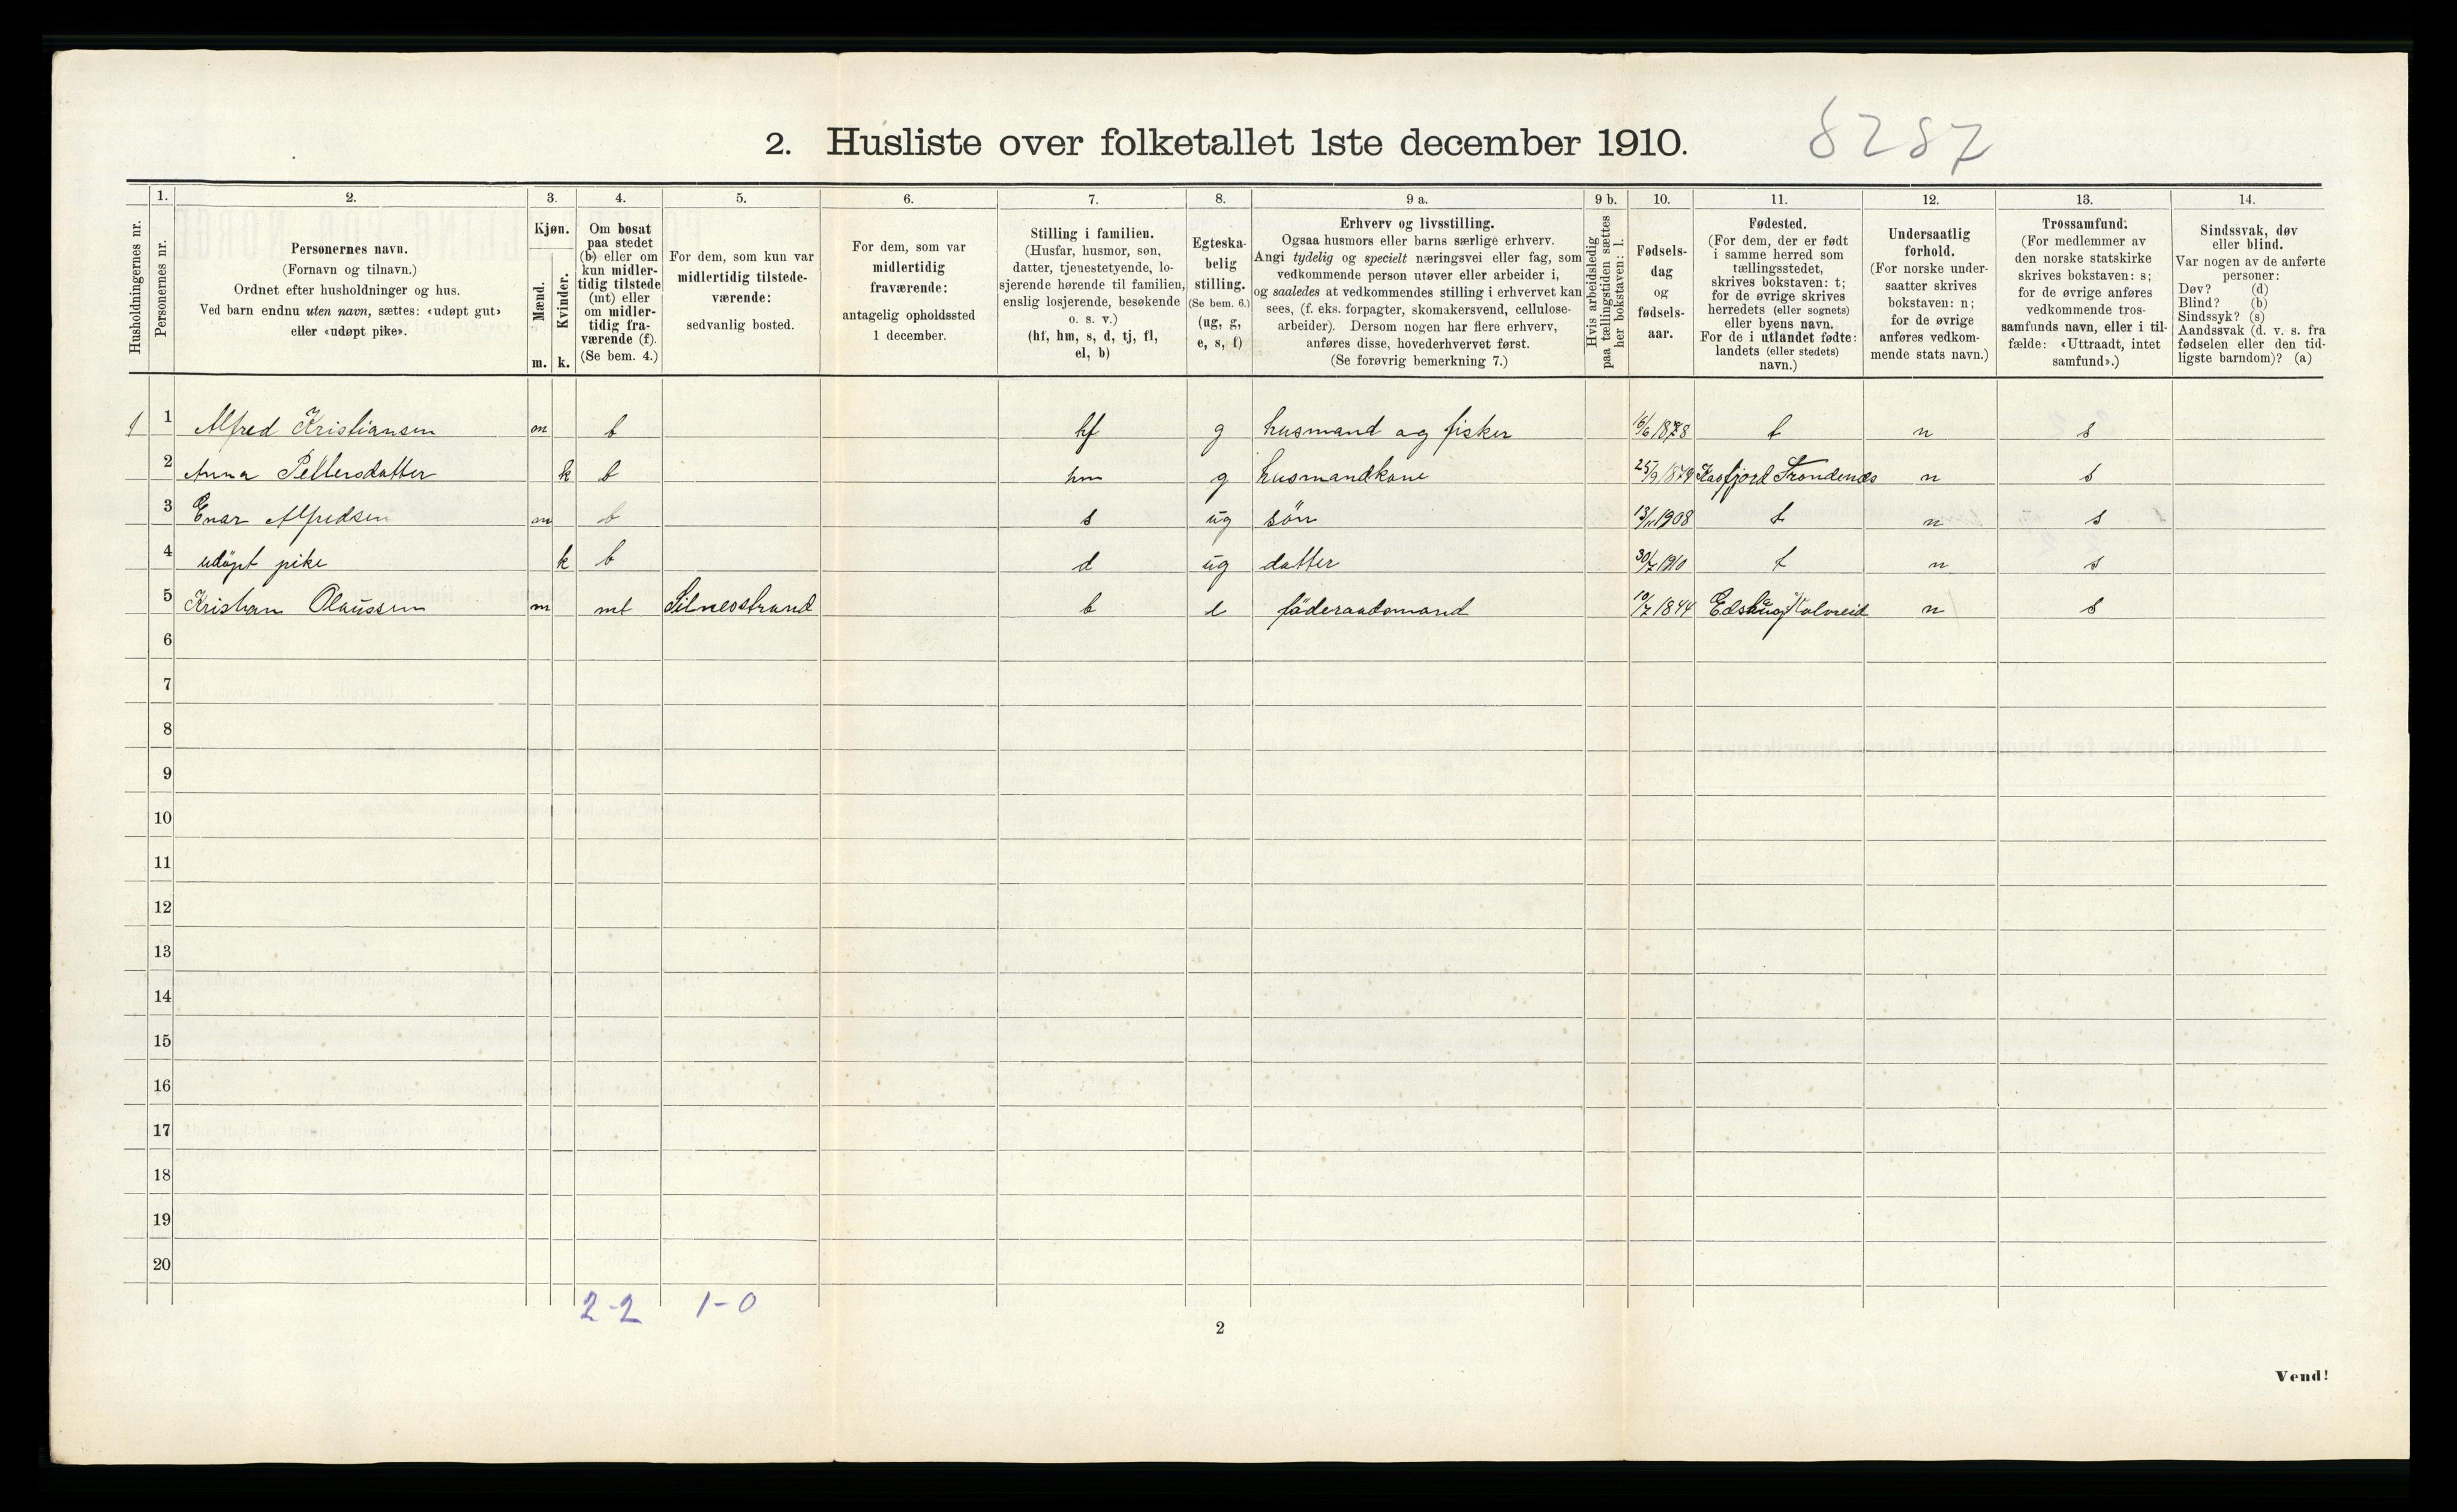 2. Husliste over folketallet 1ste december 1910.
8287
Husholdningernes nr.
1.
Personernes nr.
2.
Personernes navn.
(Fornavn og tilnavn.)
Ordnet efter husholdninger og hus.
Ved barn endnu uten navn, sættes: «udøpt gut»
eller «udøpt pike».
3.
Kjøn.
Mænd.
Kvinder.
m. k.
4.
Om bosat
paa stedet
(b) eller om
kun midler-
tidig tilstede
(mt) eller
om midler-
tidig fra-
værende (f).
(Se bem. 4.)
5.
For dem, som kun var
midlertidig tilstede-
værende:
sedvanlig bosted.
6.
For dem, som var
midlertidig
fraværende:
antagelig opholdssted
1 december.
7.
Stilling i familien.
(Husfar, husmor, søn,
datter, tjenestetyende, lo-
sjerende hørende til familien,
enslig losjerende, besøkende
o. s. v.)
(hf, hm, s, d, tj, fl,
el, b)
8.
Egteska-
belig
stilling.
(Se bem. 6.)
(ug, g,
e, s, f)
9 a.
Erhverv og livsstilling.
Ogsaa husmors eller barns særlige erhverv.
Angi tydelig og specielt næringsvei eller fag, som
vedkommende person utøver eller arbeider i,
og saaledes at vedkommendes stilling i erhvervet kan
sees, (f. eks. forpagter, skomakersvend, cellulose-
arbeider). Dersom nogen har flere erhverv,
anføres disse, hovederhvervet først.
(Se forøvrig bemerkning 7.)
9 b.
Hvis arbeidsledig
paa tællingstiden sættes
her bokstaven: l.
10.
Fødsels-
dag
og
fødsels-
aar.
11.
Fødested.
(For dem, der er født
i samme herred som
tællingsstedet,
skrives bokstaven: t;
for de øvrige skrives
herredets (eller sognets)
eller byens navn.
For de i utlandet fødte:
landets (eller stedets)
navn.)
12.
Undersaatlig
forhold.
(For norske under-
saatter skrives
bokstaven: n;
for de øvrige
anføres vedkom-
mende stats navn.)
13.
Trossamfund.
(For medlemmer av
den norske statskirke
skrives bokstaven: s;
for de øvrige anføres
vedkommende tros-
samfunds navn, eller i til-
fælde: «Uttraadt, intet
samfund».)
14.
Sindssvak, døv
eller blind.
Var nogen av de anførte
personer:
Døv? (d)
Blind? (b)
Sindssyk? (s)
Aandssvak (d. v. s. fra
fødselen eller den tid-
ligste barndom)? (a)
1 1 Alfred Kristiansen m b hf g husmand og fisker 16/6 1878 t n s
2 Anna Pettersdatter k b hm g husmandkone 25/9 1874 Kasfjord Trondenæs n s
3 Enar Alfredsen m b s ug sön 13/11 1908 t n s
4 udöpt pike k b d ug datter 30/7 1910 t n s
5 Kristian Olaussen m mt b e föderaadsmand 10/7 1844 n s
6
7
8
9
10
11
12
13
14
15
16
17
18
19
20
2-2 1-0
2
Vend!